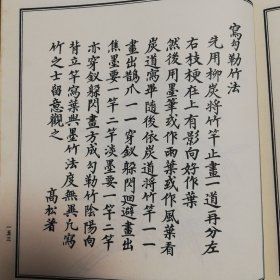 寫勾勒竹法
先用柳炭將竹竿止畫一道再分左
右枝梗在上有影向好作葉
然後用墨筆或作雨葉或作風葉看
炭道寫畢隨後依炭道將竹竿一一
畫出鵲爪一一穿釵躲閃迴避畫出
焦墨要一竿二竿淡墨要一竿二竿
亦穿釵躲閃畫方成勾勒竹陰陽向
背立竿寫葉與墨竹法度無異凡寫
竹之士留意觀之
高松著
一五三